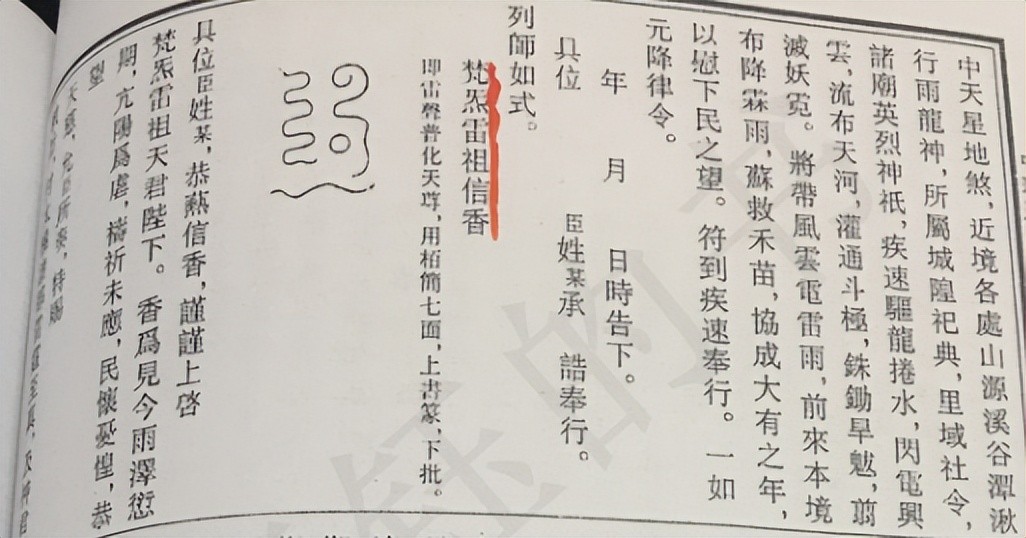 中天星地煞，近境各處山源溪谷潭湫
行雨龍神，所屬城隍祀典，里域社令，
諸廟英烈神祇，疾速驅龍捲水，閃電興
雲，流布天河，灌通斗極，銖鋤旱魃，翦
滅妖氛。將帶風雲電雷雨，前來本境
布降霖雨，蘇救禾苗，協成大有之年，
以慰下民之望。符到疾速奉行。一如
元降律令。
年 月 日時告下。
具位 臣姓某承 誥奉行。
列師如式。
梵炁雷祖信香
即雷聲普化天尊，用栢簡七面，上書篆，下批。
具位臣姓某，恭爇信香，謹謹上啓
梵炁雷祖天君陛下。香爲見今雨澤愆
期，亢陽爲虐，禱祈未應，民懷憂惶，恭
望
天慈，允臣所奏，特賜